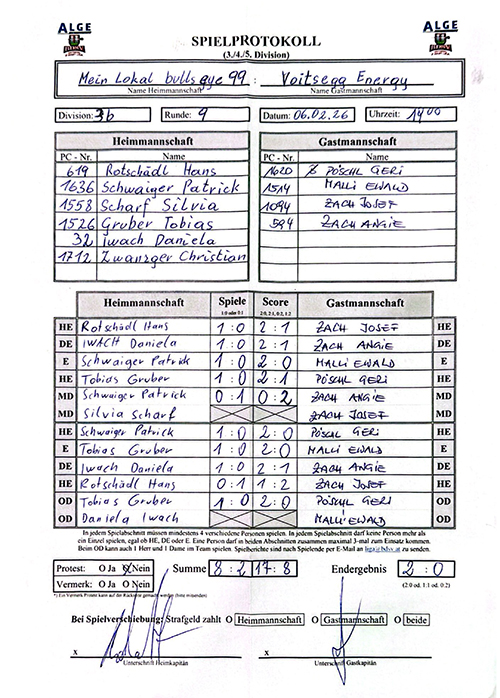 ALGE ALGE
SPIELPROTOKOLL
(3./4./5. Division)
Mein Lokal bullseye 99 : Voitsegg Energy
Name Heimmannschaft Name Gastmannschaft
Division: 3b Runde: 9 Datum: 06.02.26 Uhrzeit: 1400
Heimmannschaft Gastmannschaft
PC - Nr. Name PC - Nr. Name
619 Rotschädl Hans 1620 PÖSCHL GERI
1636 Schwaiger Patrick 1514 MALLI EWALD
1558 Scharf Silvia 1094 ZACH JOSEF
1526 Gruber Tobias 594 ZACH ANGIE
32 Iwach Daniela
1712 Zwanzger Christian
Heimmannschaft Spiele Score Gastmannschaft
1:0 oder 0:1 2:0, 2:1, 0:2, 1:2
HE Rotschädl Hans 1 : 0 2 : 1 ZACH JOSEF HE
DE IWACH Daniela 1 : 0 2 : 1 ZACH ANGIE DE
E Schwaiger Patrick 1 : 0 2 : 0 MALLI EWALD E
HE Tobias Gruber 1 : 0 2 : 1 PÖSCHL GERI HE
MD Schwaiger Patrick 0 : 1 0 : 2 ZACH ANGIE MD
MD Silvia Scharf ZACH JOSEF MD
HE Schwaiger Patrick 1 : 0 2 : 0 PÖSCHL GERI HE
E Tobias Gruber 1 : 0 2 : 0 MALLI EWALD E
DE Iwach Daniela 1 : 0 2 : 1 ZACH ANGIE DE
HE Rotschädl Hans 0 : 1 1 : 2 ZACH JOSEF HE
OD Tobias Gruber 1 : 0 2 : 0 PÖSCHL GERI OD
OD Daniela Iwach MALLI EWALD OD
In jedem Spielabschnitt müssen mindestens 4 verschiedene Personen spielen. In jedem Spielabschnitt darf keine Person mehr als
ein Einzel spielen, egal ob HE, DE oder E. Eine Person darf in beiden Abschnitten zusammen maximal 3-mal zum Einsatz kommen.
Beim OD kann auch 1 Herr und 1 Dame im Team spielen. Spielberichte sind nach Spielende per E-Mail an liga@bdsv.at zu senden.
Protest: O Ja O Nein Summe 8 : 2 17 : 8 Endergebnis 2 : 0
Vermerk: O Ja O Nein (2:0 od. 1:1 od. 0:2)
*) Ein Vermerk/Protest kann auf der Rückseite gemacht werden (bitte ankreuzen)
Bei Spielverschiebung: Strafgeld zahlt O Heimmannschaft O Gastmannschaft O beide
x x
Unterschrift Heimkapitän Unterschrift Gastkapitän